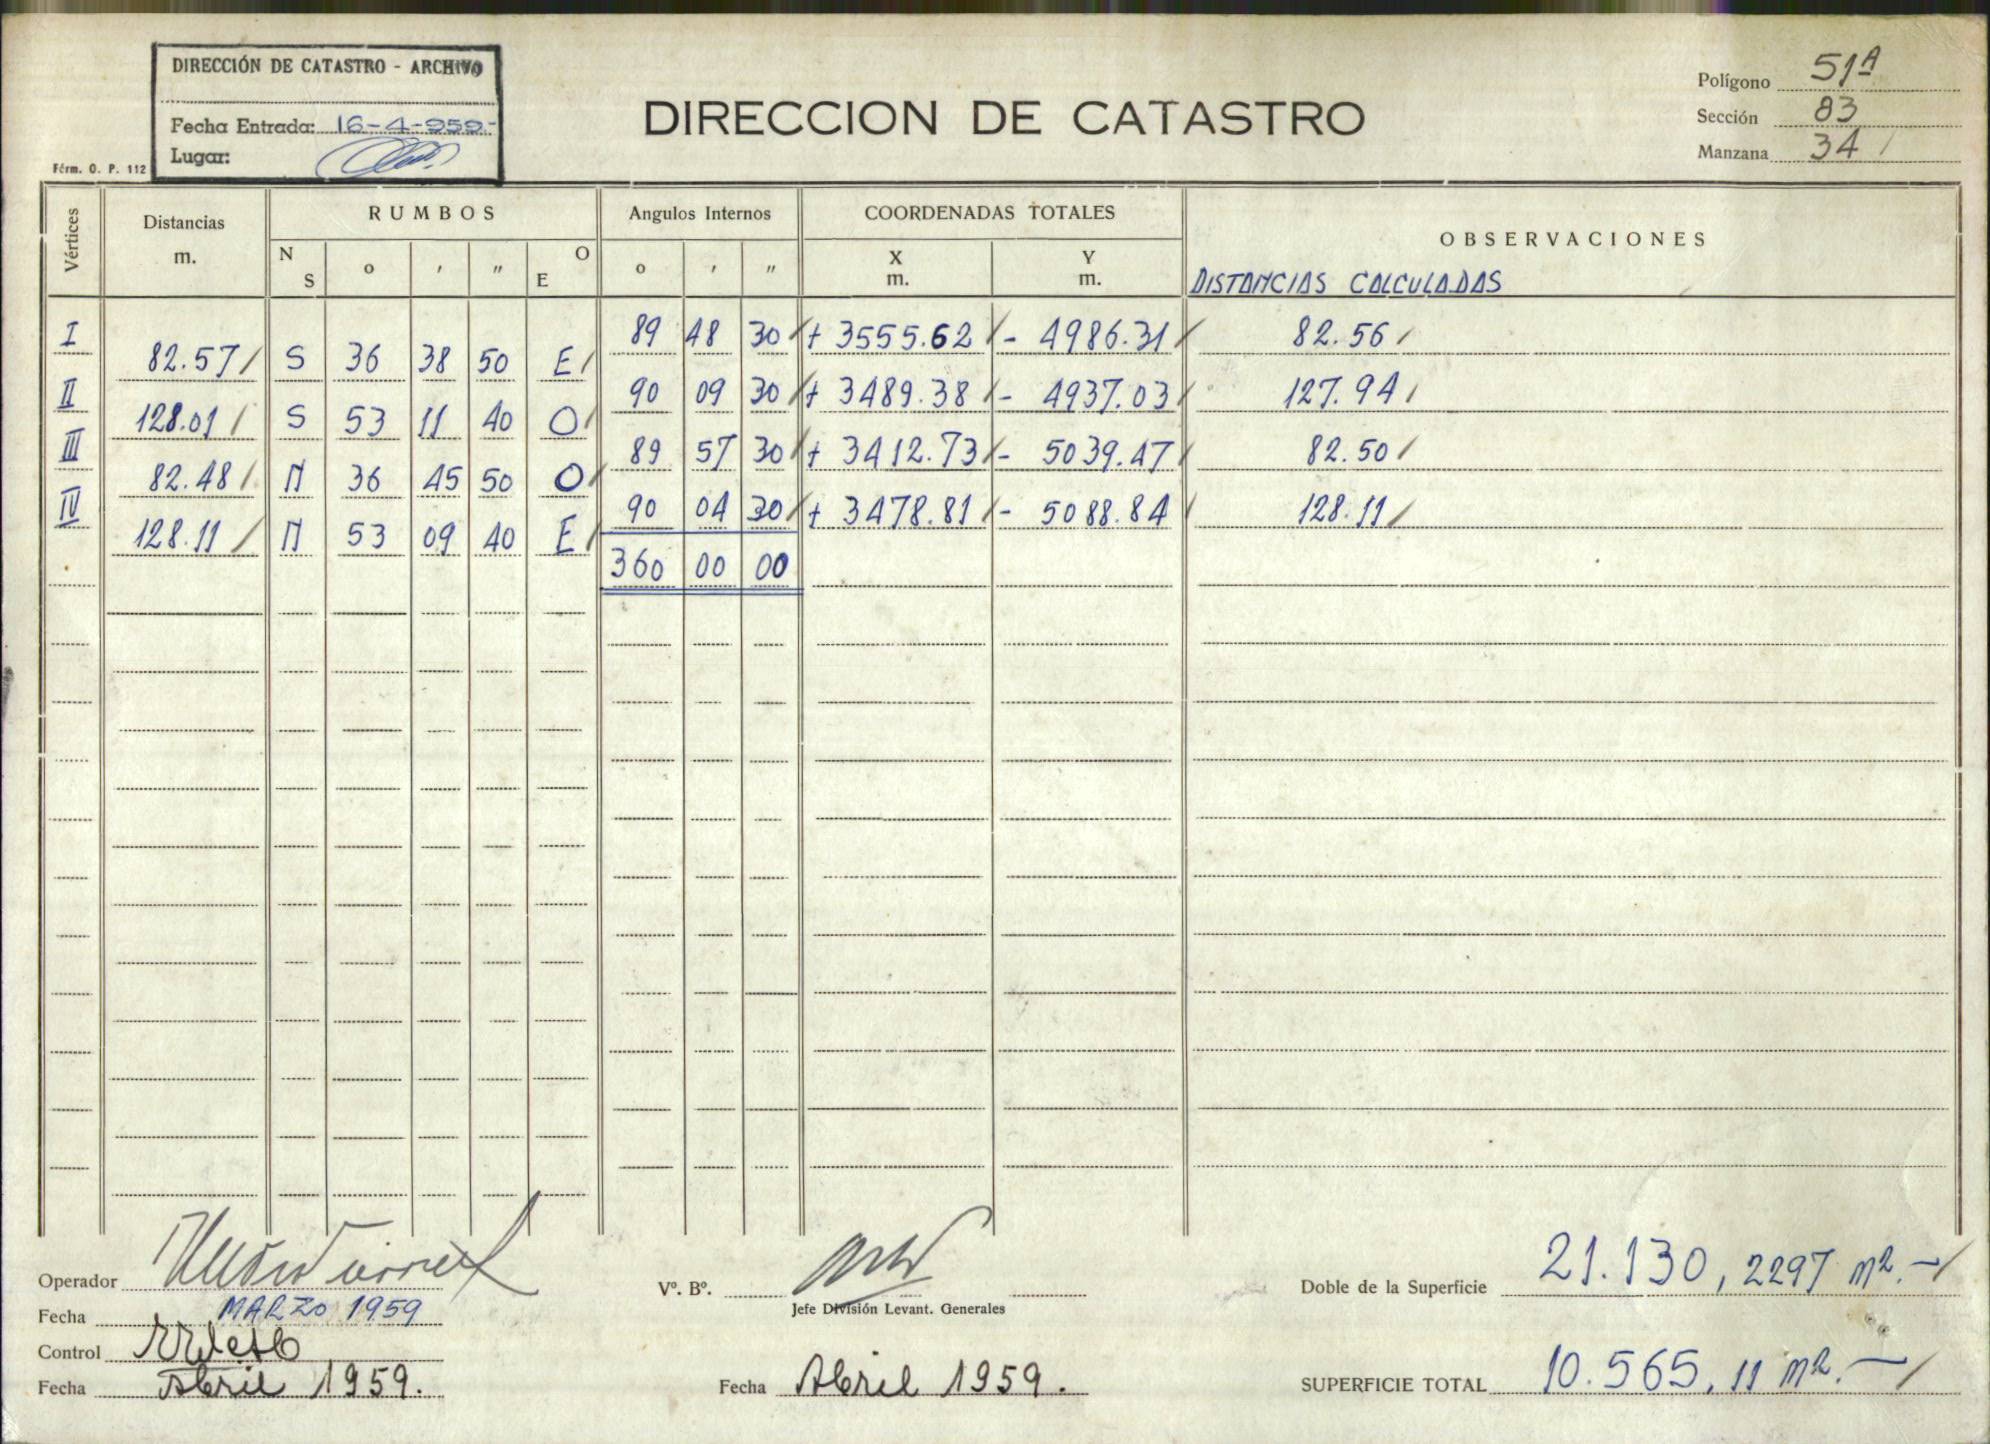 DIRECCIÓN DE CATASTRO - ARCHIVO
Fecha Entrada: 16-4-959.-
Lugar:
Fórm. O. P. 112
DIRECCION DE CATASTRO
Polígono 51ª
Sección 83
Manzana 34 /
Vértices Distancias m. RUMBOS Angulos Internos COORDENADAS TOTALES OBSERVACIONES
N S º ' " E O º ' " X m. Y m. DISTANCIAS CALCULADAS
I 89 48 30 / + 3555.62 / - 4986.31 / 82.56 /
82.57 / S 36 38 50 E /
II 90 09 30 / + 3489.38 / - 4937.03 / 127.94 /
128.01 / S 53 11 40 O /
III 89 57 30 / + 3412.73 / - 5039.47 / 82.50 /
82.48 / N 36 45 50 O /
IV 90 04 30 / + 3478.81 / - 5088.84 / 128.11 /
128.11 / N 53 09 40 E /
360 00 00
Operador
Fecha MARZO 1959
Control
Fecha Abril 1959.
Vº. Bº.
Jefe División Levant. Generales
Fecha Abril 1959.
Doble de la Superficie 21.130,2297 m2.-/
SUPERFICIE TOTAL 10.565,11 m2.-/